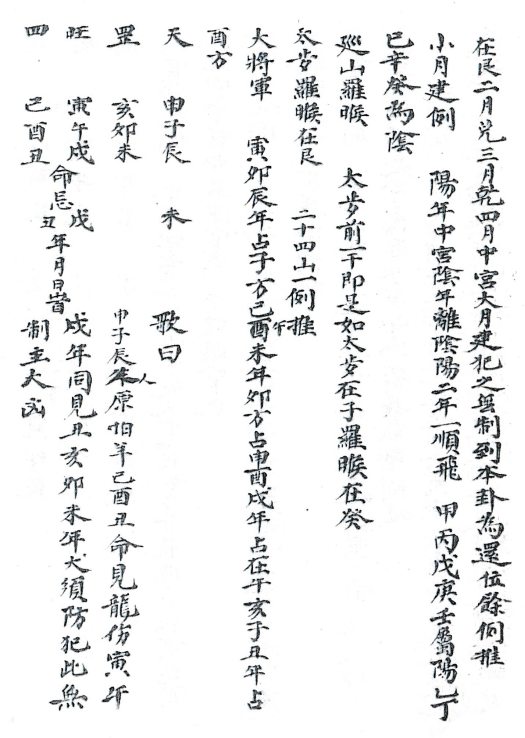 在艮二月兌三月乾四月中宮大月建犯之無制到本卦為還位餘倣推
小月建例　陽年中宮陰年離陰陽二年一順飛　甲丙戊庚壬屬陽乙丁
巳辛癸為陰
巡山羅睺　太歩前一干即是如太歩在子羅睺在癸
太歩羅睺在艮　二十四山一例推
大將軍　寅卯辰年占子方巳午酉未年卯方占申酉戌年占在午亥子丑年占
酉方
天　申子辰　未　歌曰
罡　亥卯未　申子辰人原怕羊巳酉丑命見龍傍寅午
旺　寅午戌　命忌戌丑年月日皆　戌年同見丑亥卯未年犬須防犯此無
四　巳酉丑　制主大凶